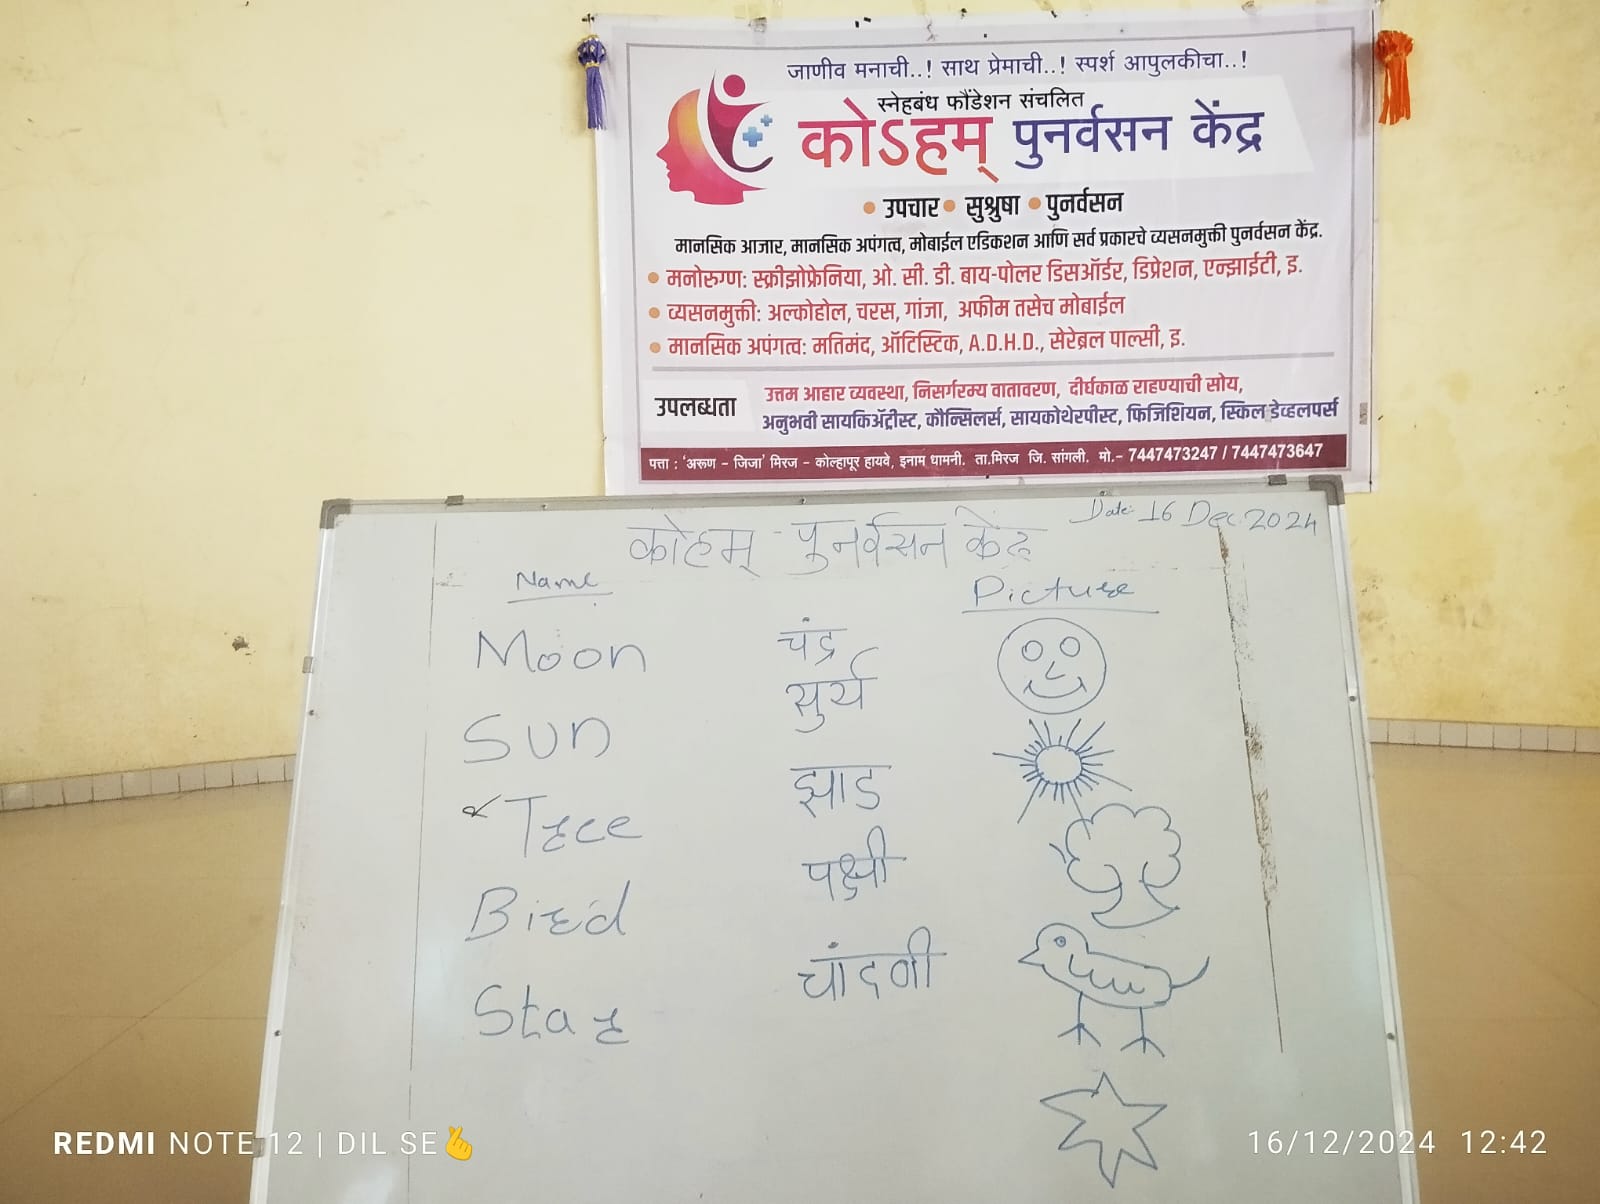 जाणीव मनाची..! साथ प्रेमाची..! स्पर्श आपुलकीचा..!
स्नेहबंध फौंडेशन संचलित
कोऽहम् पुनर्वसन केंद्र
• उपचार • सुश्रुषा • पुनर्वसन
मानसिक आजार, मानसिक अपंगत्व, मोबाईल एडिकशन आणि सर्व प्रकारचे व्यसनमुक्ती पुनर्वसन केंद्र.
• मनोरुग्ण: स्क्रीझोफ्रेनिया, ओ. सी. डी. बाय-पोलर डिसऑर्डर, डिप्रेशन, एन्झाईटी, इ.
• व्यसनमुक्ती: अल्कोहोल, चरस, गांजा, अफीम तसेच मोबाईल
• मानसिक अपंगत्व: मतिमंद, ऑटिस्टिक, A.D.H.D., सेरेब्रल पाल्सी, इ.
उपलब्धता
उत्तम आहार व्यवस्था, निसर्गरम्य वातावरण, दीर्घकाळ राहण्याची सोय,
अनुभवी सायकिअ‍ॅट्रीस्ट, कौन्सिलर्स, सायकोथेरपीस्ट, फिजिशियन, स्किल डेव्हलपर्स
पत्ता : 'अरूण – जिजा' मिरज – कोल्हापूर हायवे, इनाम धामनी. ता.मिरज जि. सांगली. मो.- 7447473247 / 7447473647
Date: 16 Dec 2024
कोहम् - पुनर्वसन केंद्र
Name Picture
Moon चंद्र
Sun सुर्य
Tree झाड
Bird पक्षी
Star चांदणी
REDMI NOTE 12 | DIL SE
16/12/2024 12:42